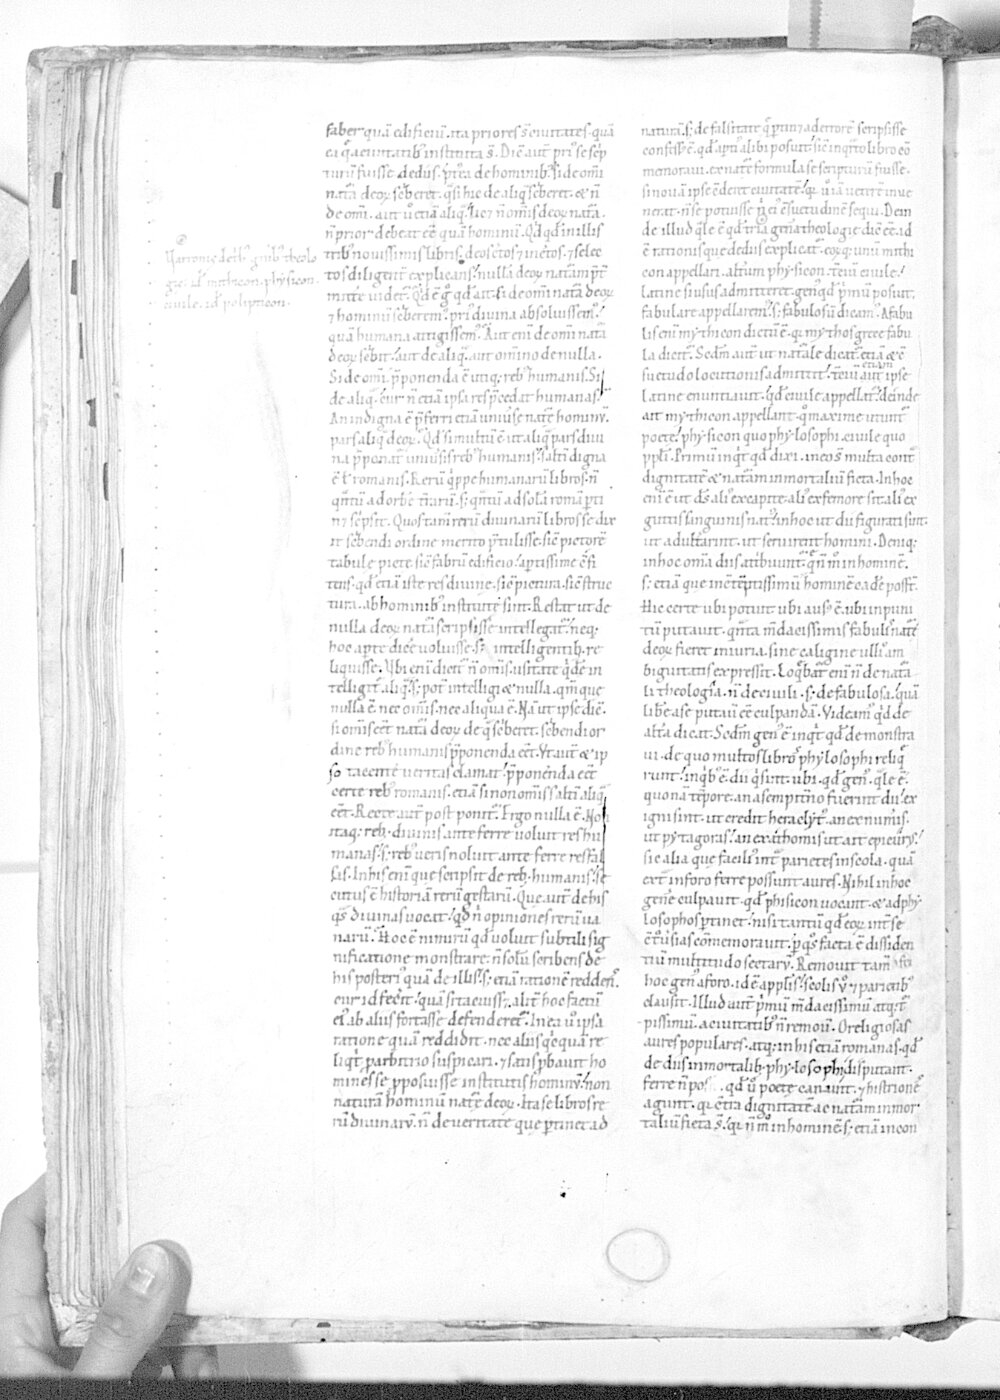 Varronis de trib; gn̄ib; theolo
gie. id. mithicon. physicon.
ciuile. id. politicon.
faber quā edificiū. ita priores s̄ ciuitates. quā
ea q̄ a ciuitatib; instituta s̄. Dic̄ aut̄ pri᷒ se sc̄p
turū fuisse de dīis. p̄tea de hominib; Si de om̄i
nat̄a deoꝝ sc̄beret. q̄si hic de aliq̄ sc̄beret. & n̄
de om̄i. aut ū etiā aliq̄. licꝫ n̄ om̄is deoꝝ nat̄a.
n̄ prior debeat ēē quā hominū. Qd̄ qd̄ in illis
trib; nouissimis libris. deos c̄tos ⁊ inc̄tos. ⁊ selec
tos diligent̄ explicans. nullā deoꝝ nat̄am p̄t
mitte videt᷒. Qd̄ ē g̊ qd̄ ait. si de om̄i nat̄a deoꝝ
⁊ hominū sc̄berem᷒. pri᷒ diuina absoluissem᷒.
quā humana attigissem᷒. Aut eni de om̄i nat̄a
deoꝝ sc̄bit. aut de aliq̄. aut omnino de nulla.
Si de om̄i. p̄ponenda ē utiq; reb; humanis. Si
de aliq̄. cur n̄ etiā ipsa res p̄cedat humanas.
An indigna ē p̄ferri etiā uniu̓se nat̄e hominū.
pars aliq̄ deoꝝ. Qd̄ si multū ē ut aliq̄ pars diui
na p̄ponat᷒ uniu̓sis reb; humanis. saltī digna
ē t̄ romanis. Rerū q̄ppe humanarū libros. n̄
q̄ntū ad orbē t̄rarū. s; q̄ntū ad solā romā p̄ti
n; sc̄psit. Quos tam̄ rerū diuinarū libros se dix
it sc̄bendi ordine merito p̄tulisse. sic̄ pictorē
tabule picte. sic̄ fabrū edificio. aptissime c̄fi
tens. qd̄ etiā iste res diuine. sic̄ pictura. sic̄ struc
tura. ab hominib; institute sint. Restat ut de
nulla deoꝝ nat̄a scripsisse intellegat᷒. neq;
hoc apte dic̄e uoluisse. s; intelligentib; re
liquisse. Vbi enī dicit᷒ n̄ om̄is. usitate q̄de in
telligit᷒. aliq̄. s; pot̄ intelligi & nulla. qm̄ que
nulla ē nec om̄is. nec aliqua ē. Nā ut ipse dic̄.
si om̄is eēt nat̄a deoꝝ de q̄ sc̄beret. sc̄bendi or
dine reb; humanis p̄ponenda eēt. Vt aut̄ & ip
so tacente ueritas clamat. p̄ponenda eēt
certe reb; romanis. etiā si non om̄is saltī aliq̄
eēt. Recte aut̄ post ponit᷒. Ergo nulla ē. Non
itaq; reb; diuinis. ante ferre uoluit res hu
manas. s; reb; ueris noluit ante ferre res fal
sas. In his eni que scripsit de reb; humanis. se
cutus ē historiā rerū gestarū. Que aut̄ de his
q̄s diuinas uocat. qd̄ n̄ opiniones rerū ua
narū. Hoc ē nimirū qd̄ uoluit subtili sig
nificatione monstrare. n̄ solū scribens de
his posteri᷒ quā de illis. s; etiā rationē reddens.
cur id fecit. quā si tacuiss;. alit̄ hoc factū
ei᷒ ab aliis fortasse defenderet᷒. In ea ū ipsa
ratione quā reddidit. nec aliis q̄cquā re
liqt̄ p̄ arbitrio suspicari. ⁊ satis p̄bauit ho
mines se p̄posuisse institutis hominū. non
naturā hominū nat̄e deoꝝ. Ita se libros re
rū diuinarū. n̄ de ueritate que p̄tinet ad
naturā. s; de falsitate q̄ p̄tin; ad errorē scripsisse
confess᷒ ē. qd̄ apti᷒ alibi posuit. sic̄ in q̄rto libro cō
monoraui. ex nat̄e formula se scripturū fuisse.
si nouā ipse c̄deret ciuitatē. q; ū iā ueterē inue
nerat. n̄ se potuisse n̄ ei᷒ c̄suetudinē sequi. Dein
de illud q̄le ē qd̄ tria gen̄a theologie dic̄ eē. id
ē rationis que de dīis explicat᷒. eoꝝq; unū mithi
con appellari. altrum physicon. tciū ciuile.
Latine si usus admitteret. gen᷒ qd̄ p̄mū posuit.
fabulare appellarem᷒. s; fabulosū dicam᷒. A fabu
lis enī mythicon dictū ē. q; mythos grece fabu
la dicit᷒. Sc̄dm̄ aut̄ ut nat̄ale dicat᷒. etiā & c̄
suetudo locutionis admittit. tciū etiam aut̄ ipse
Latine enuntiauit. qd̄ ciuile appellat᷒. deinde
ait. mythicon appellant. q̊ maxime utunt᷒
poete. physicon quo phylosophi. ciuile quo
pp̄li. Primū inq̄t qd̄ dixi. in eo s̄ multa cont᷒
dignitatē & nat̄am inmortaliū ficta. In hoc
enī ē ut ds̄ ali᷒ ex capite. ali᷒ ex femore sit. ali᷒ ex
guttis sanguinis nat᷒. in hoc ut dii furati sint.
ut adult̄arint. ut seruierint homini. Deniq;
in hoc om̄a diis attibuunt᷒. que n̄ m̊ in hominē.
s; etiā que in c̄tēptissimū hominē cade poss̄t.
Hic certe ubi potuit. ubi aus᷒ ē. ubi inpuni
tū putauit. q̄nta m̄dacissimis fabulis nat̄e
deoꝝ fieret iniuria. sine caligine ulli᷒ am
biguitatis expressit. Loq̄bat᷒ enī n̄ de nat̄a
li theologia. n̄ de ciuili. s; de fabulosa. quā
libe a se putauit eē culpandā. Videam᷒ qd̄ de
alt̄a dicat. Sc̄dm̄ gen᷒ ē inq̄t qd̄ demonstra
ui. de quo multos libros phylosophi reliq̄
runt. in q̄b; ē. dii q̄ sint. ubi. qd̄ gen᷒. q̄le ē.
quo nā tēpore. an a sempitn̄o fuerint dii. ex
igni sint. ut credit heraclyt᷒. an ex num̄is.
ut pytagoras. an ex athomis ut ait epicur᷒.
sic alia que facili᷒ int̄ parietes in scola. quā
ext̄ in foro ferre possunt aures. Nihil in hoc
gen̄e culpauit. qd̄ phisicon uocant. & ad phy
losophos p̄tinet. nisi tantū qd̄ eoꝝ int̄ se
c̄trou̓sias cōmemorauit. p̄ q̄s facta ē dissiden
tiū multitudo sectarū. Remouit tam̄
hoc gen᷒ a foro. id ē a pplis. scolis ū ⁊ parietib;
clausit. Illud aut̄ p̄mū m̄dacissimū atq; t᷒
pissimū. a ciuitatib; n̄ remouit. O religiosas
aures populares. atq; in his etiā romanas. qd̄
de diis inmortalib; phylosophi disputant.
ferre n̄ pos . qd̄ ū poete canunt. ⁊ histrionē
agunt. q; c̄tra dignitatē ac nat̄am inmor
taliū ficta s̄. q; n̄ m̊ in hominē s; etiā in con